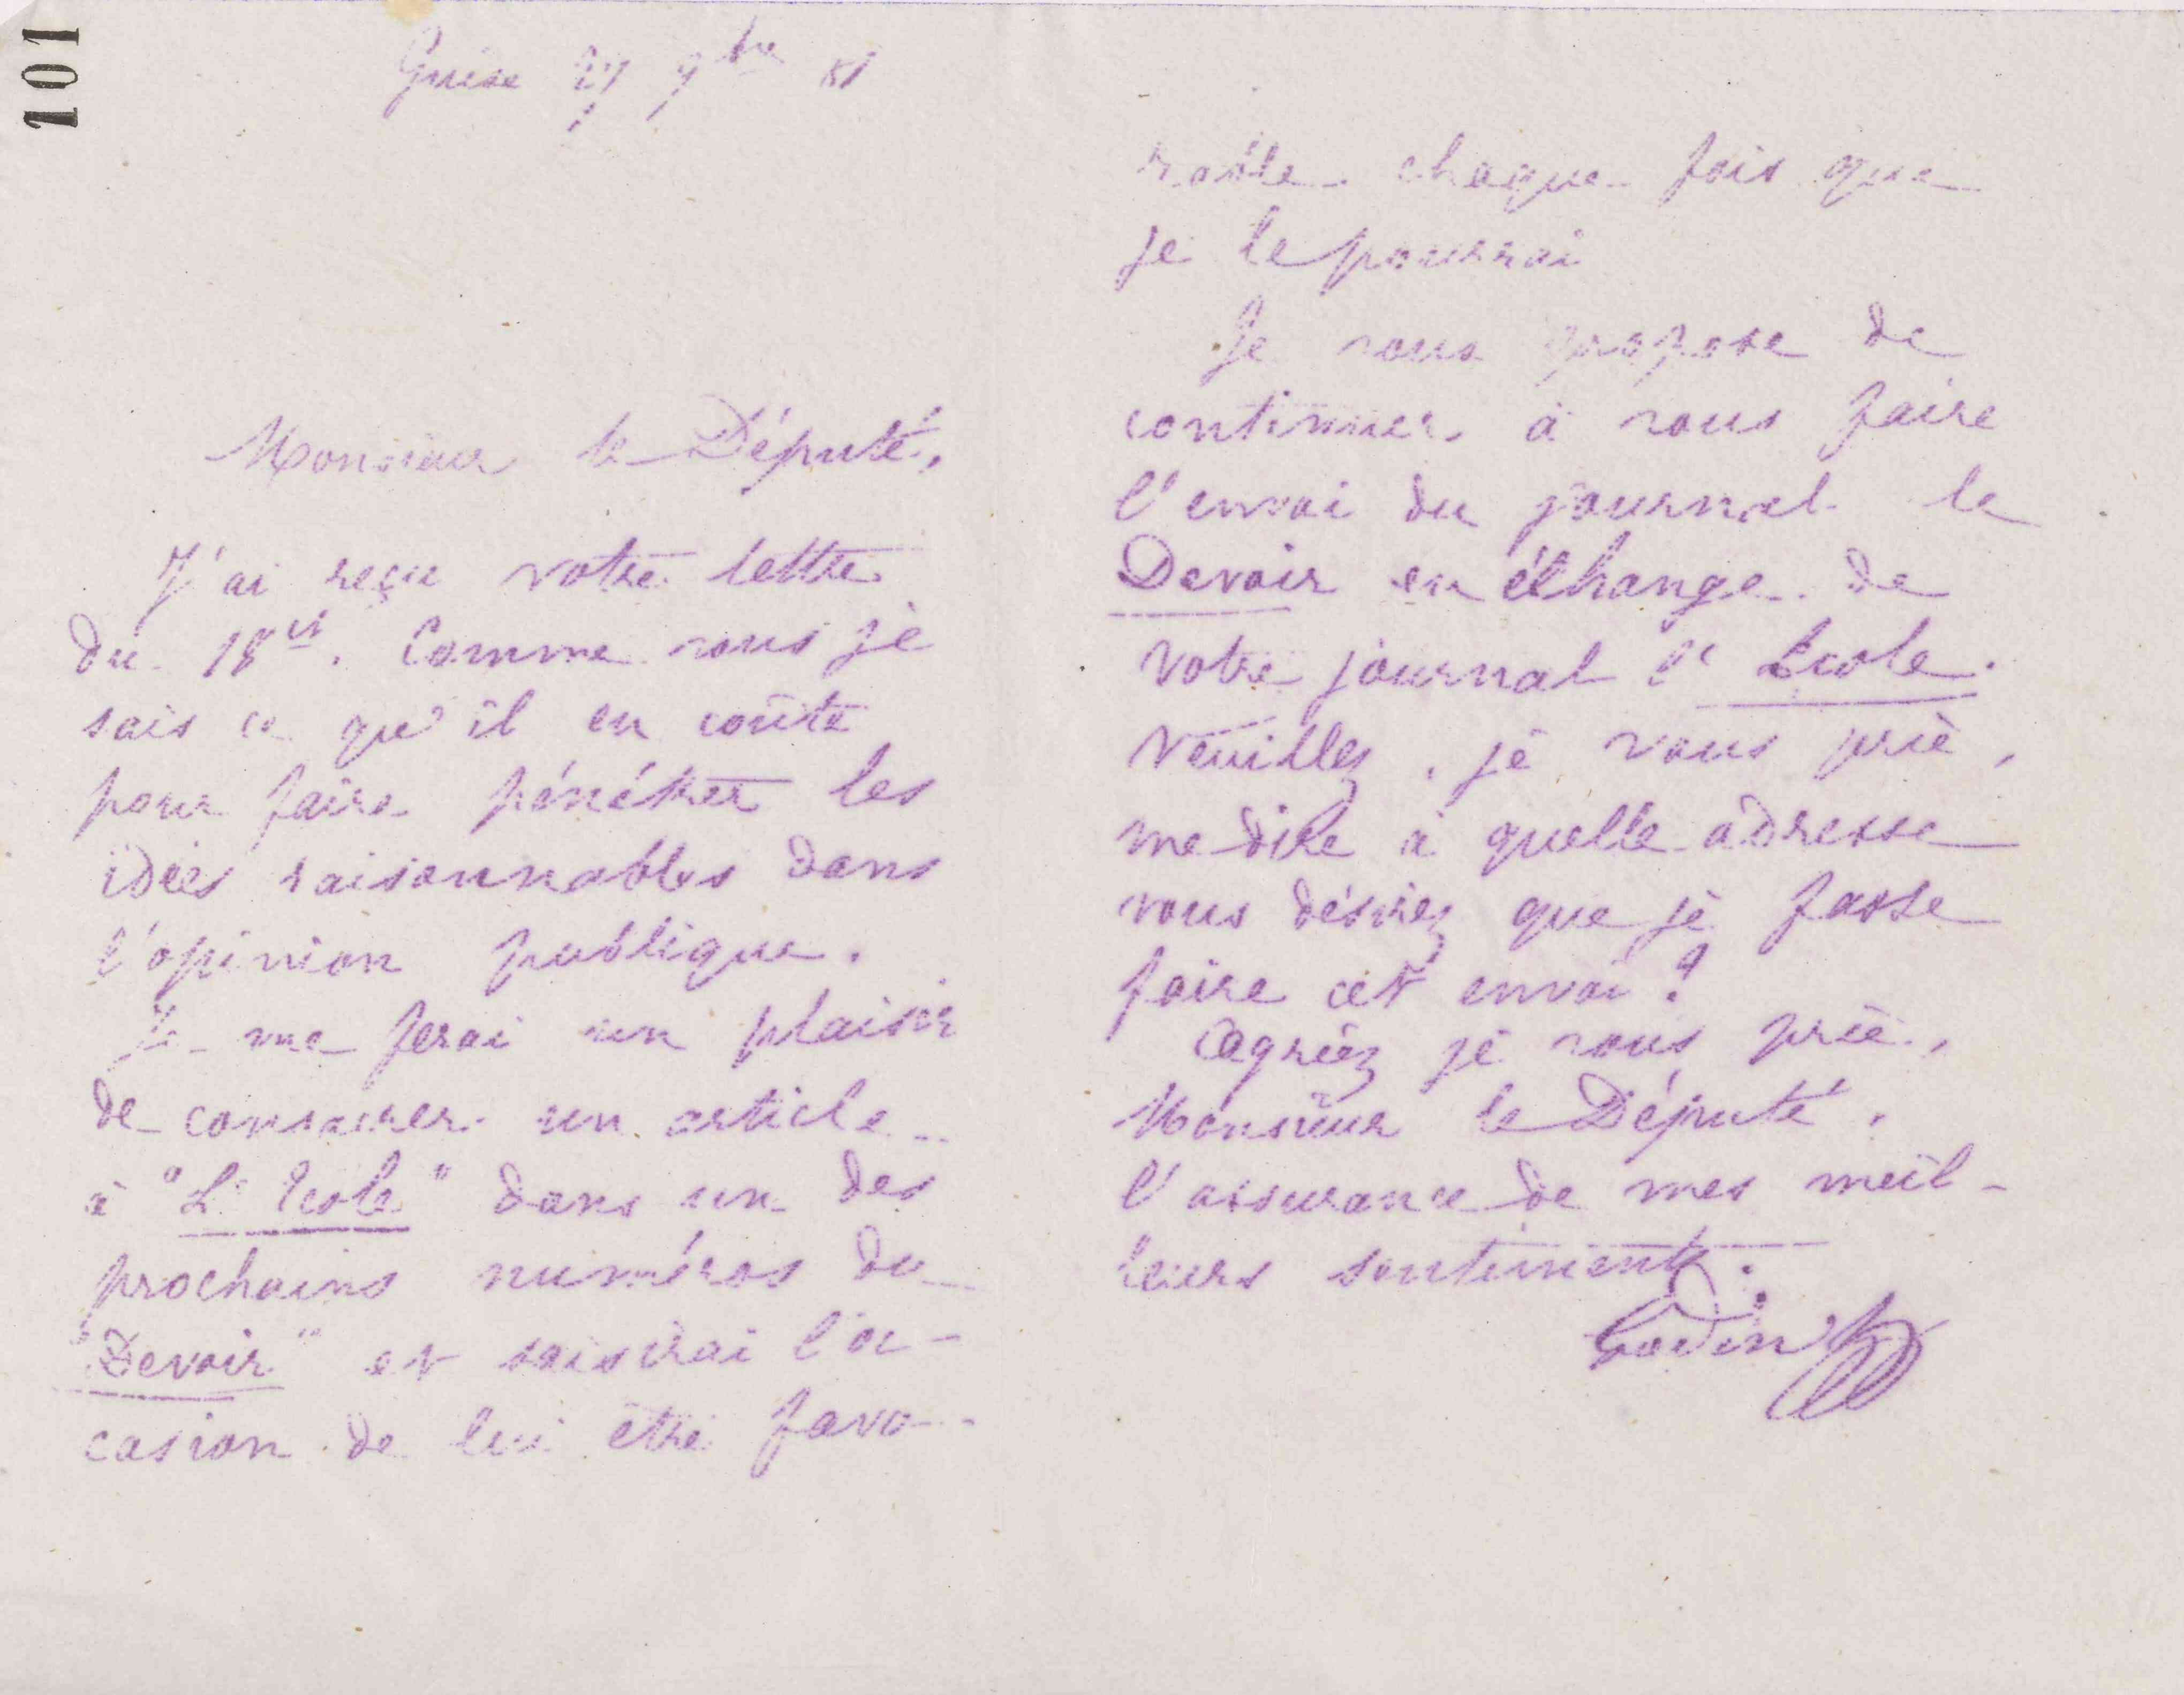 101
Guise 27 9bre 81
Monsieur le Député,
J'ai reçu votre lettre
du 18 ct. Comme vous je
sais ce qu'il en coûte
pour faire pénétrer les
idées raisonnables dans
l'opinion publique.
Je me ferai un plaisir
de consacrer un article
à "L'Ecole" dans un des
prochains numéros du
"Devoir" et saisirai l'oc-
casion de lui être favo-
rable chaque fois que
je le pourrai
Je vous propose de
continuer à vous faire
l'envoi du journal le
Devoir en échange de
votre journal l'Ecole.
Veuillez, je vous prie,
me dire à quelle adresse
vous désirez que je fasse
faire cet envoi ?
Agréez je vous prie,
Monsieur le Député,
l'assurance de mes meil-
leurs sentiments.
Godin